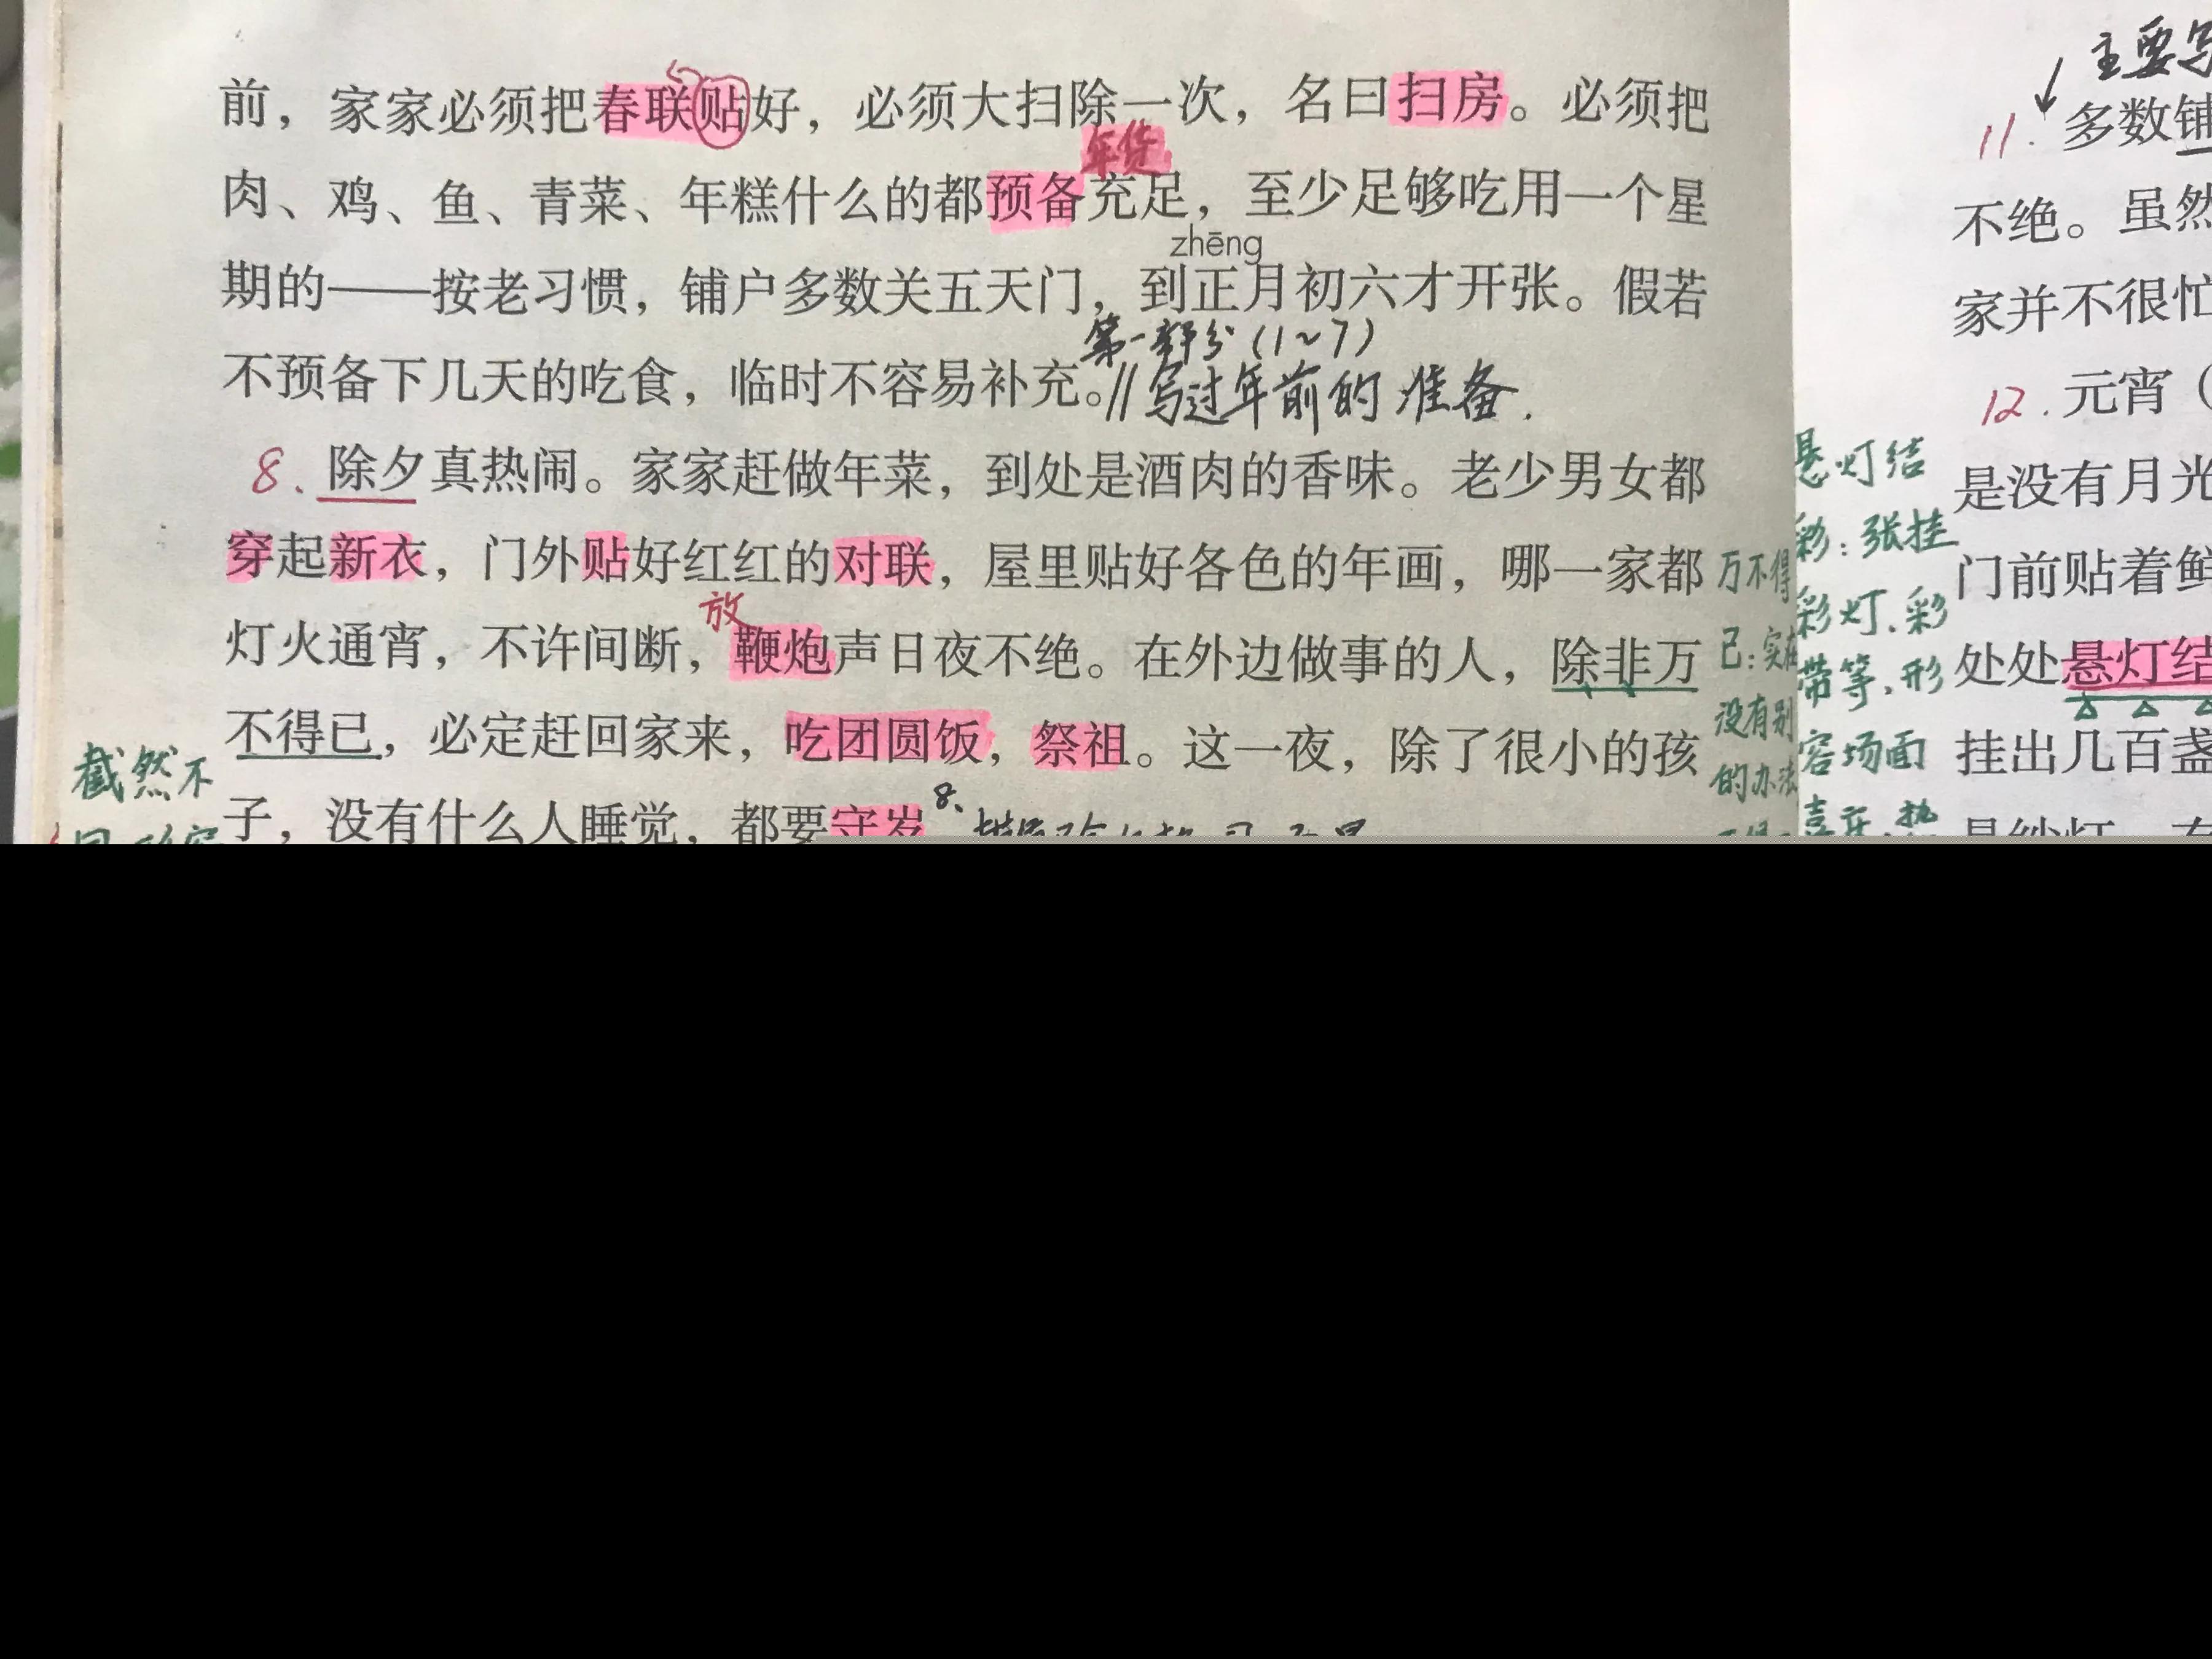 前，家家必须把春联贴好，必须大扫除一次，名曰扫房。必须把
年货
肉、鸡、鱼、青菜、年糕什么的都预备充足，至少足够吃用一个星
zhēng
期的——按老习惯，铺户多数关五天门，到正月初六才开张。假若
第一部分（1~7）
不预备下几天的吃食，临时不容易补充。//写过年前的准备.
8、除夕真热闹。家家赶做年菜，到处是酒肉的香味。老少男女都
穿起新衣，门外贴好红红的对联，屋里贴好各色的年画，哪一家都
放
灯火通宵，不许间断，鞭炮声日夜不绝。在外边做事的人，除非万
不得已，必定赶回家来，吃团圆饭，祭祖。这一夜，除了很小的孩
子，没有什么人睡觉，都要守岁
8、
截然不
万不得
已：实在
没有别
的办法
主要写
11.多数铺
不绝。虽然
家并不很忙
12.元宵（
是没有月光
门前贴着鲜
处处悬灯结
挂出几百盏
是纱灯，有
悬灯结
彩：张挂
彩灯、彩
带等，形
容场面
喜庆、热